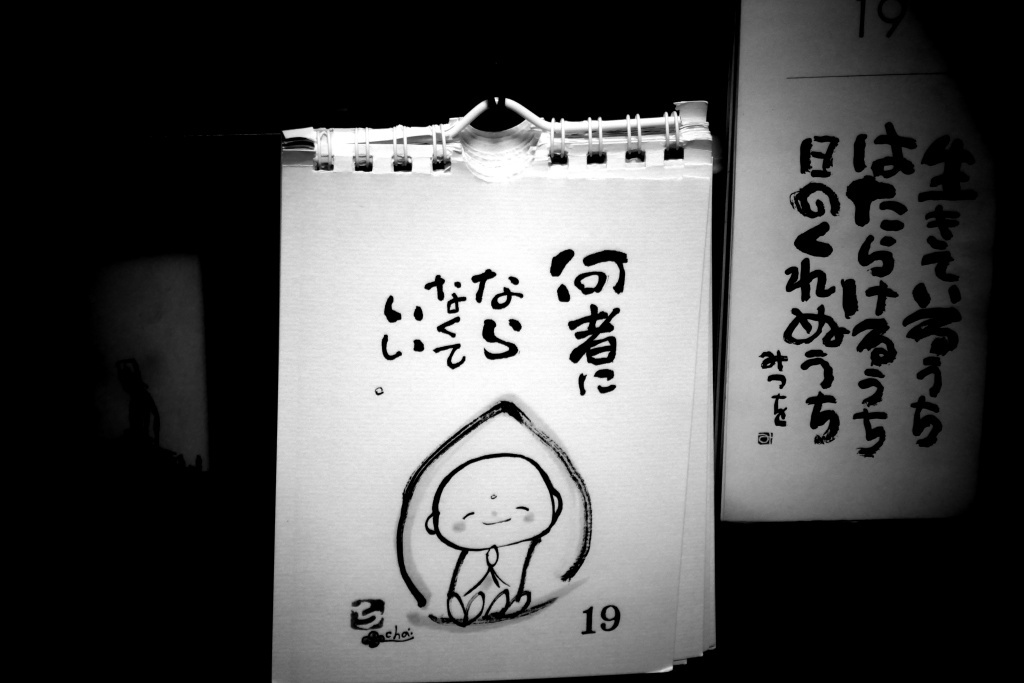 何者に
なら
なくて
いい。
ち
chai
19
19
生きているうち
はたらけるうち
日のくれぬうち
みつを